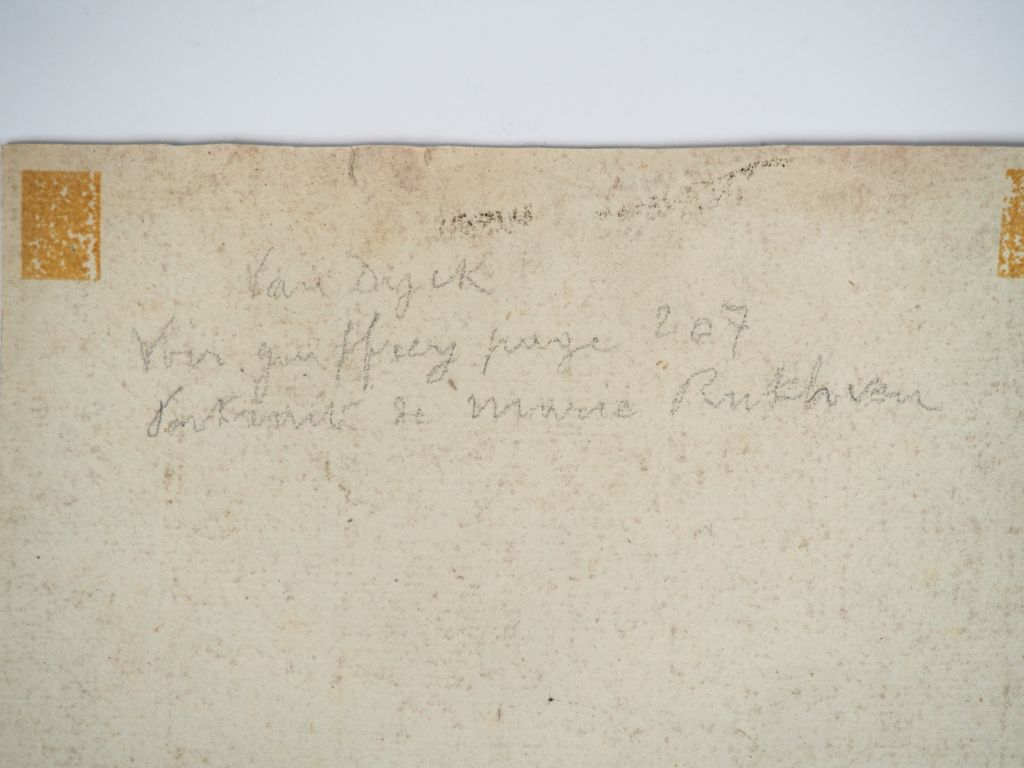 Van Dyck
Voir guiffrey page 207
Portrait de marie Ruthven